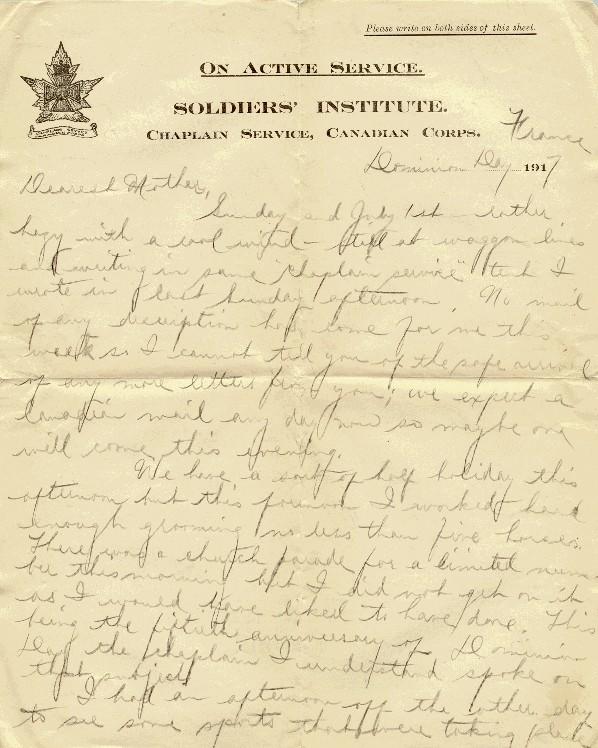 Please write on both sides of this sheet.
ON ACTIVE SERVICE.
SOLDIERS' INSTITUTE.
CHAPLAIN SERVICE, CANADIAN CORPS.
France
Dominion Day 1917
Dearest Mother,
Sunday and July 1st – rather
hazy with a cool wind – still at waggon lines
and writing in same "chaplain service" tent I
wrote in last Sunday afternoon. No mail
of any description has come for me this
week so I cannot tell you of the safe arrival
of any more letters from you; we expect a
Canadian mail any day now so maybe one
will come this evening.
We have a sort of half holiday this
afternoon but this forenoon I worked hard
enough grooming no less than five horses.
There was a church parade for a limited num-
ber this morning but I did not get on it
as I would have liked to have done. This
being the fiftieth anniversary of Dominion
Day the chaplain I understand spoke on
that subject.
I had an afternoon off the other day
to see some sports that were taking place